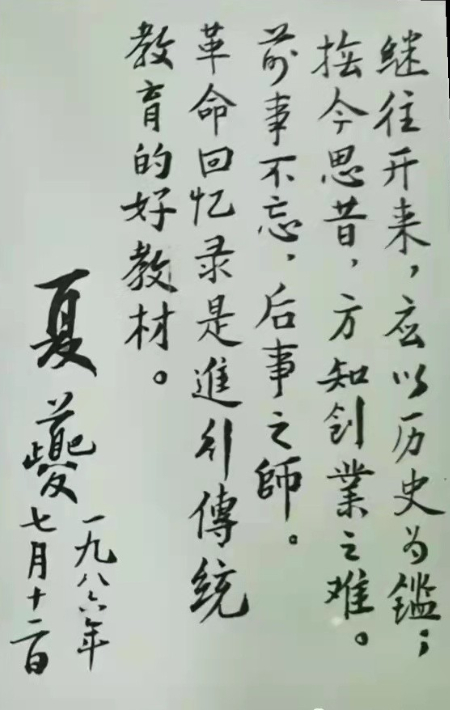 继往开来，应以历史为鑑；
抚今思昔，方知创業之难。
前事不忘，后事之師。
革命回忆录是進行傳統
教育的好教材。
夏夔
一九八六年
七月十二日